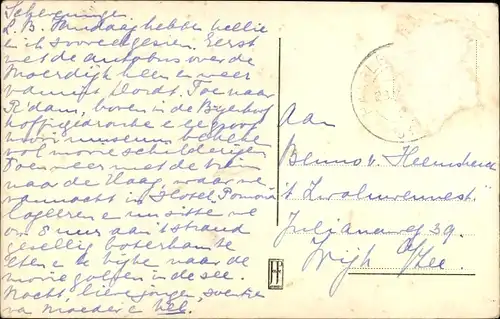 Scheveningen.
L.B. Vandaag hebben Nellie
en ik zooveel gezien. Eerst
met de autobus over de
Moerdijk heen en weer
vanuit Dordt. Toe naar
R'dam, boven in de Byenkorf
koffiegedronke e
museum
vol mooie schilderijen
Toen weer met de trein
naa de Haag, waar we
vannacht in Hotel Pomona
logeeren e nu zitte we
om 8 uur aan 't strand
gesellig boterham te
eten e te kijke naar de
mooie golfen in de zee.
Nacht, lieve jongen,
va Moeder e Nel.
Aan
Benno v. Heemskerck
't Zwaluwennest
Julianaweg 39.
Wijk a/Zee.